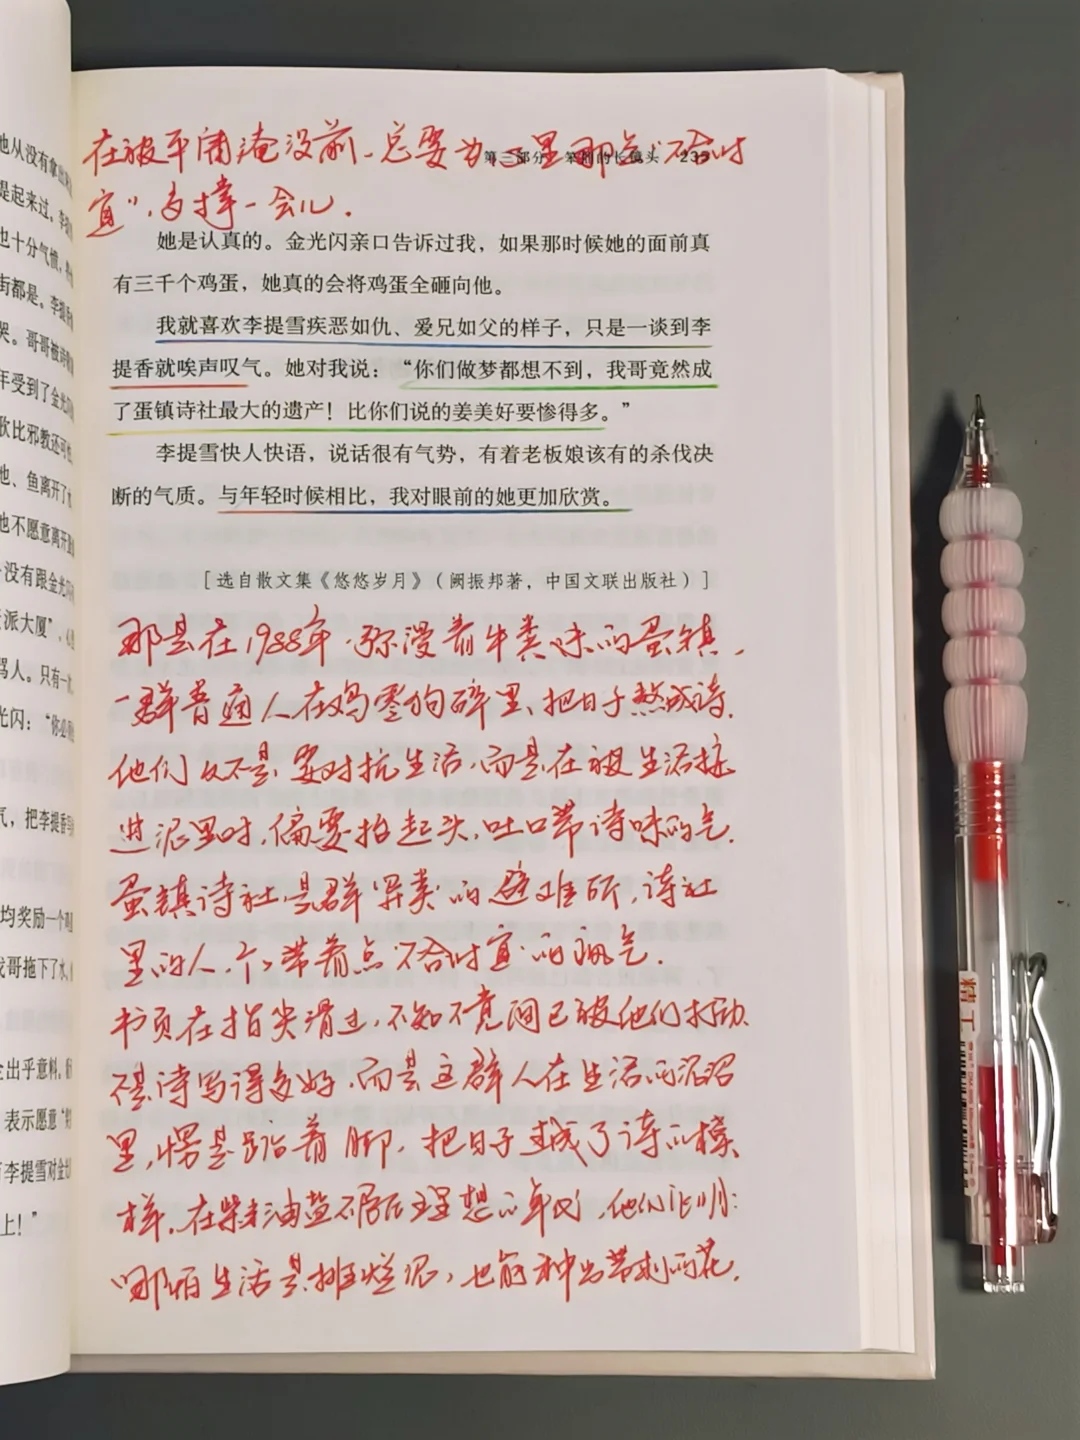 他从没有拿
提起来过。李
也十分气愤,
街都是。李提
哭。哥哥被诗
年受到了金光闪
歌比邪教还可
他、鱼离开了
他不愿意离开
没有跟金光闪
派大厦”,
骂人。只有一
光闪:“你必
气,把李提香
均奖励一个鸡
我哥拖下了水,
全出乎意料,
表示愿意“
李提雪对金光
上!”
第三部分 笨拙的长镜头 239
在被平庸淹没前、总要为心里那点“不合时
宜”,多撑一会儿.
她是认真的。金光闪亲口告诉过我,如果那时候她的面前真
有三千个鸡蛋,她真的会将鸡蛋全砸向他。
我就喜欢李提雪疾恶如仇、爱兄如父的样子,只是一谈到李
提香就唉声叹气。她对我说:“你们做梦都想不到,我哥竟然成
了蛋镇诗社最大的遗产!比你们说的姜美好要惨得多。”
李提雪快人快语,说话很有气势,有着老板娘该有的杀伐决
断的气质。与年轻时候相比,我对眼前的她更加欣赏。
[选自散文集《悠悠岁月》(阙振邦著,中国文联出版社)]
那是在1988年.弥漫着牛粪味的蛋镇,
一群普通人在鸡零狗碎里、把日子熬成诗.
他们又不是要对抗生活,而是在被生活按
进泥里时,偏要抬起头,吐口带诗味的气.
蛋镇诗社是群异类的避难所,诗社
里的人,个个带着点“不合时宜”的疯气.
书页在指尖滑过,不知不觉间已被他们打动.
不是诗写得多好.而是这群人在生活的泥沼
里,愣是踮着脚,把日子过成了诗的模
样.在柴米油盐不屑理想的年代,他们证明:
哪怕生活是摊烂泥,也能种出带刺的花.
精工